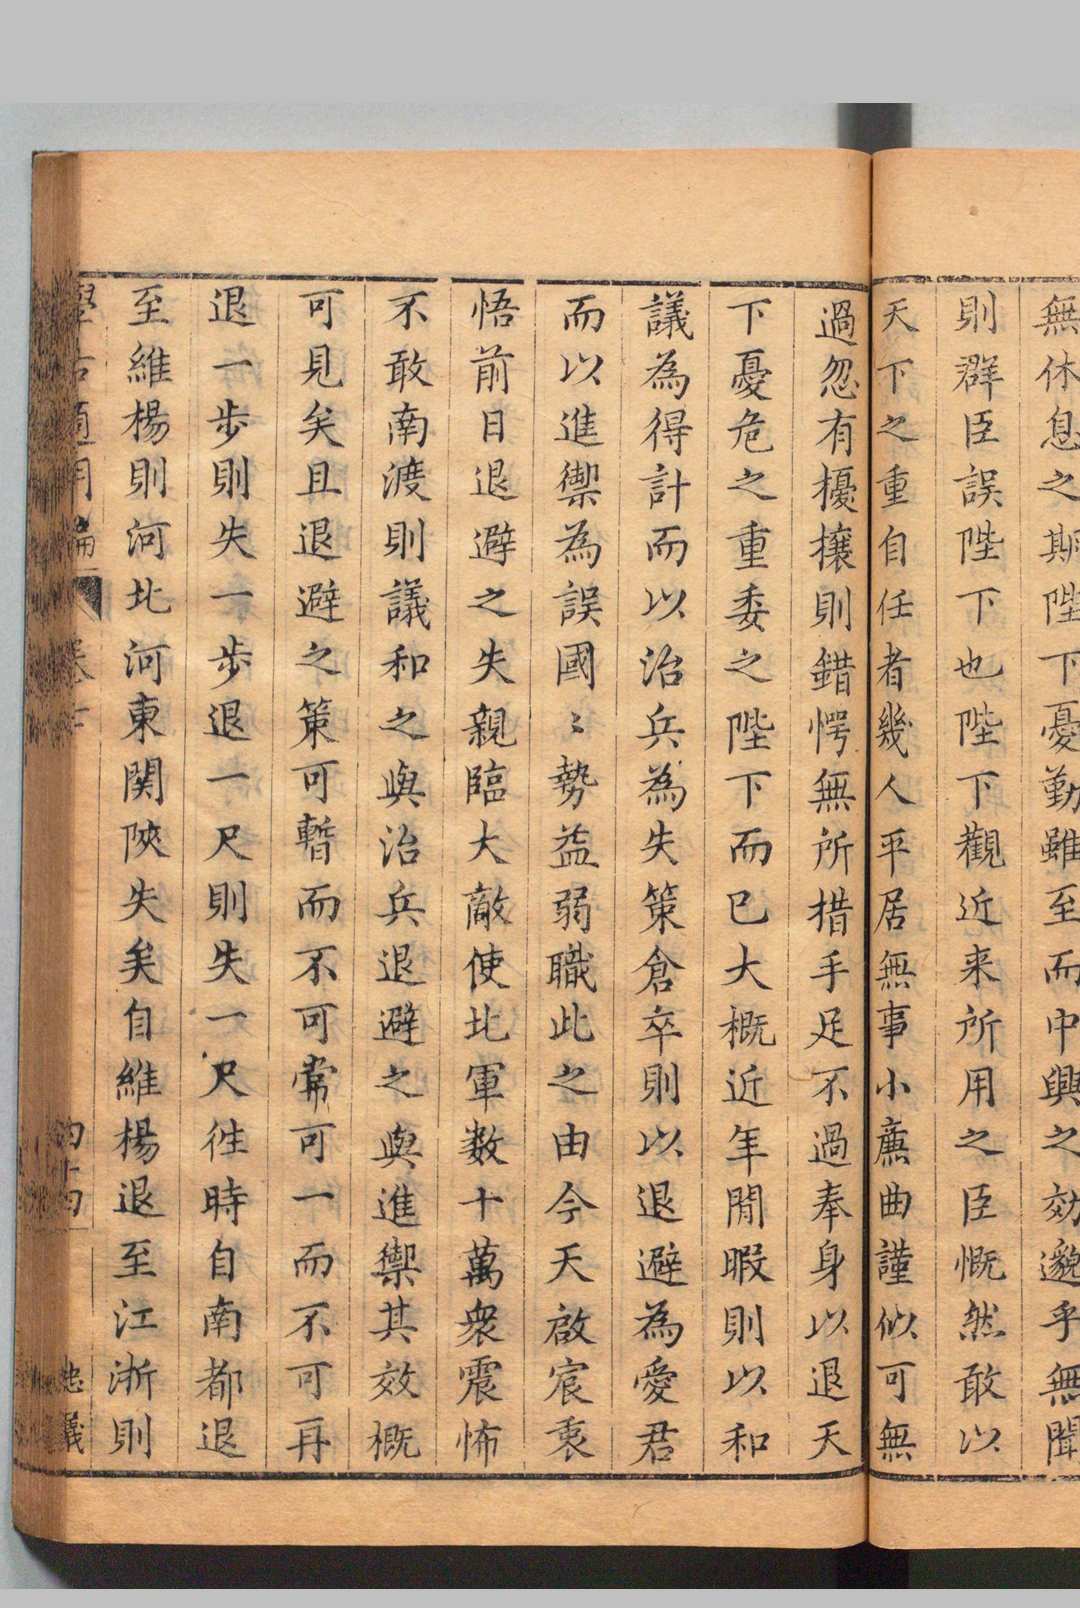 無休息之期陛下憂勤雖至而中興之効邈乎無聞
則群臣誤陛下也陛下觀近来所用之臣慨然敢以
天下之重自任者幾人平居無事小廉曲謹似可無
過忽有擾攘則錯愕無所措手足不過奉身以退天
下憂危之重委之陛下而已大概近年閒暇則以和
議為得計而以治兵為失策倉卒則以退避為愛君
而以進禦為誤國〻勢益弱職此之由今天啟宸衷
悟前日退避之失親臨大敵使北軍数十萬衆震怖
不敢南渡則議和之與治兵退避之與進禦其效概
可見矣且退避之策可暫而不可常可一而不可再
退一步則失一步退一尺則失一尺徃時自南都退
至維楊則河北河東関陝失矣自維楊退至江浙則
學古適用編 卷十 四十四 忠義